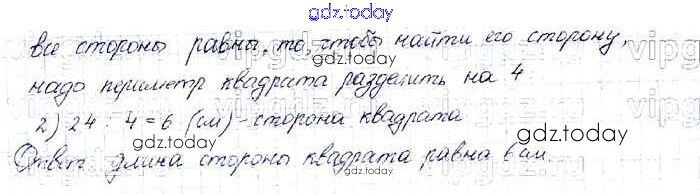 gdz.today
все стороны равны, то, чтобы найти его сторону,
надо периметр квадрата разделить на 4
gdz.today
2) 24 : 4 = 6 (см) - сторона квадрата
gdz.today
Ответ длина стороны квадрата равна 6 см.
gdz.today